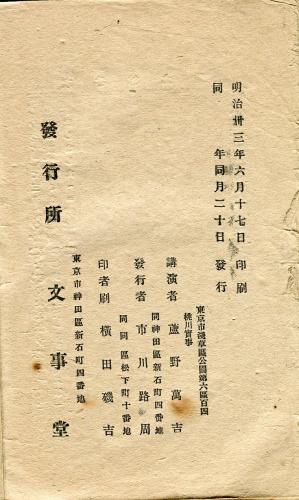 明治卅三年六月十七日印刷
同年同月二十日發行
東京市淺草區公園第六區百四
桃川實事
講演者 蘆野萬吉
同神田區新石町四番地
發行者 市川路周
同同區松下町十番地
印者刷 横田磯吉
東京市神田區新石町四番地
發行所 文事堂